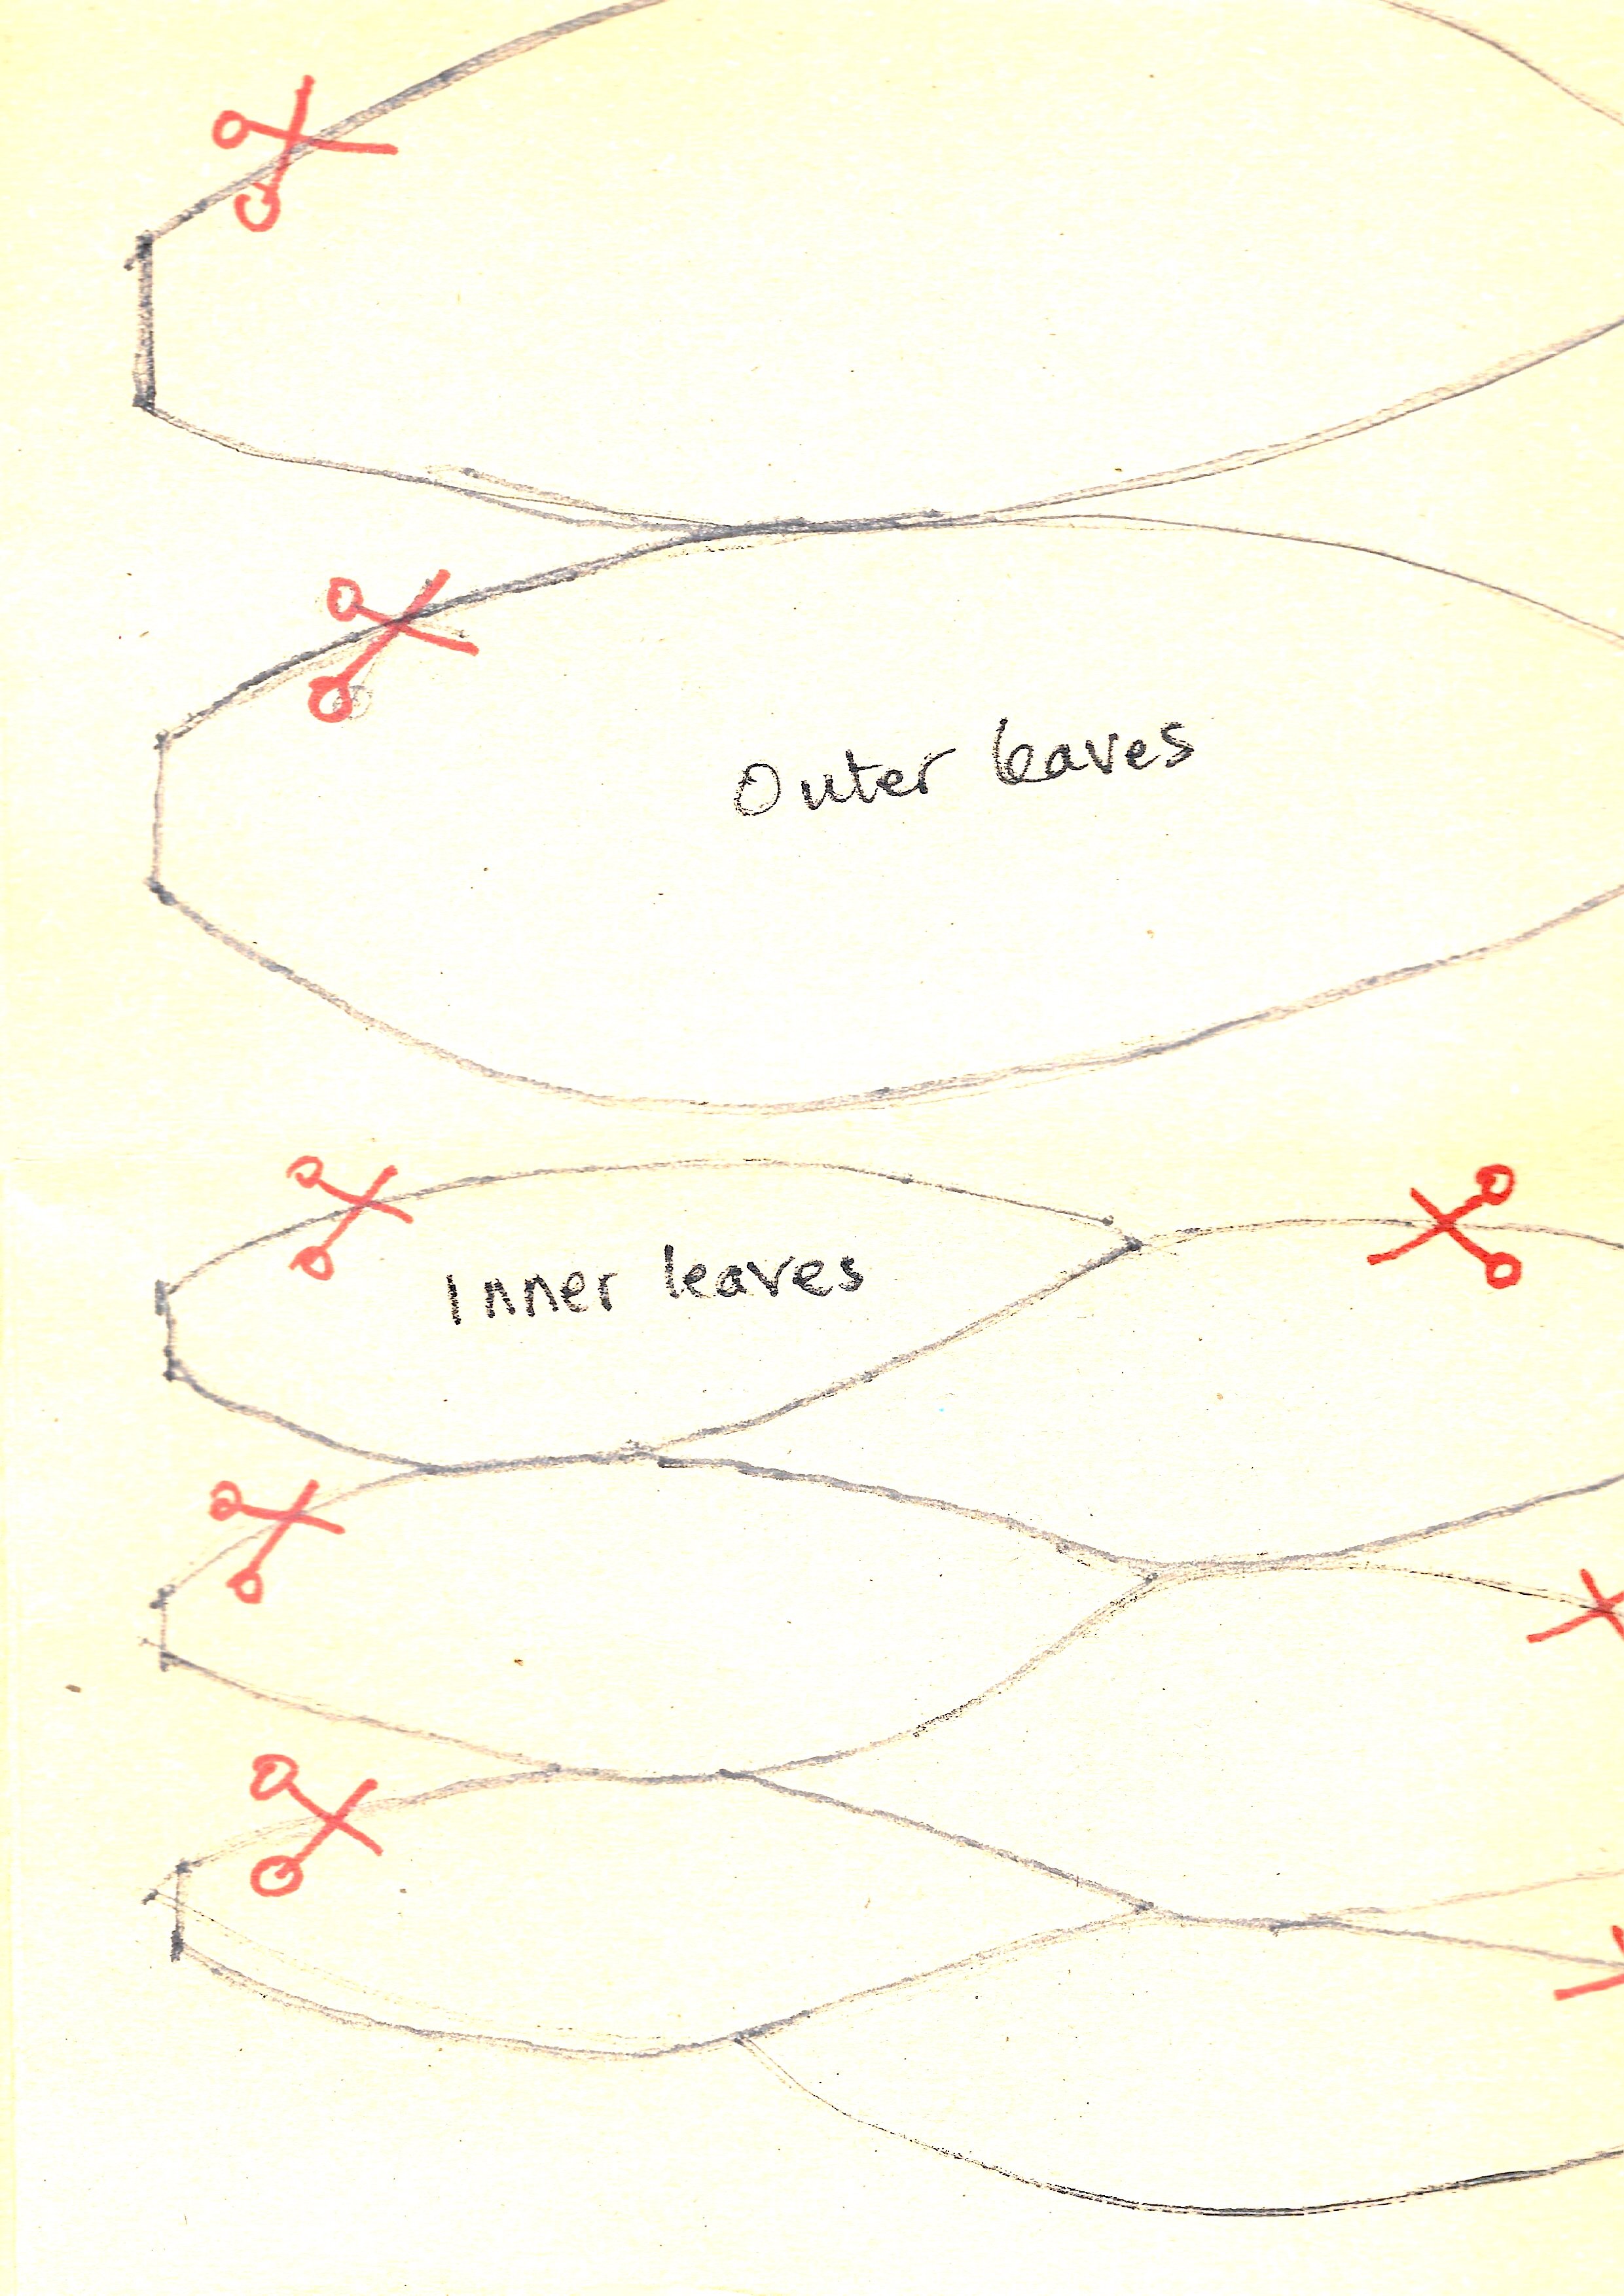 Outer leaves
Inner leaves